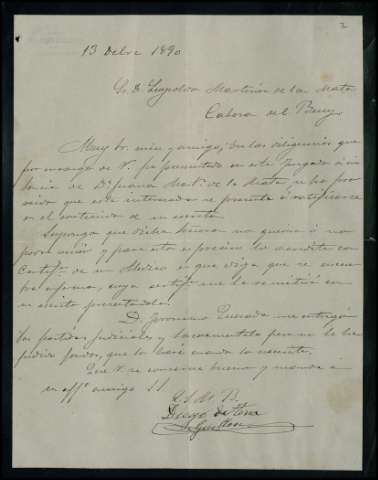 2
13 Dcbre 1890
Sr. D. Leopoldo Martínez de la Mata
Cabeza del Buey
Muy Sr. mio y amigo; en las diligencias que
por encargo de V. he presentado en este Juzgado á ins
tancia de Dª Juana Matª de la Mata, se ha pro
veido que esta interesada se presente á ratificarse
en el contenido de su escrito.
Supongo que dicha Señora no querrá ó no
podrá venir y para esto es preciso lo acredite con
Certifº de un Medico en que diga que se encuen
tra enferma, cuya certifº me la remitirá con
su escrito presentandola.
D. Jeronimo Quesada me entregó
las partidas, judiciales y
que lo haré cuando lo necesite.
Que V. se conserve bueno y mande á
su affº amigo S.S.
Q. S. M. B.
Diego de